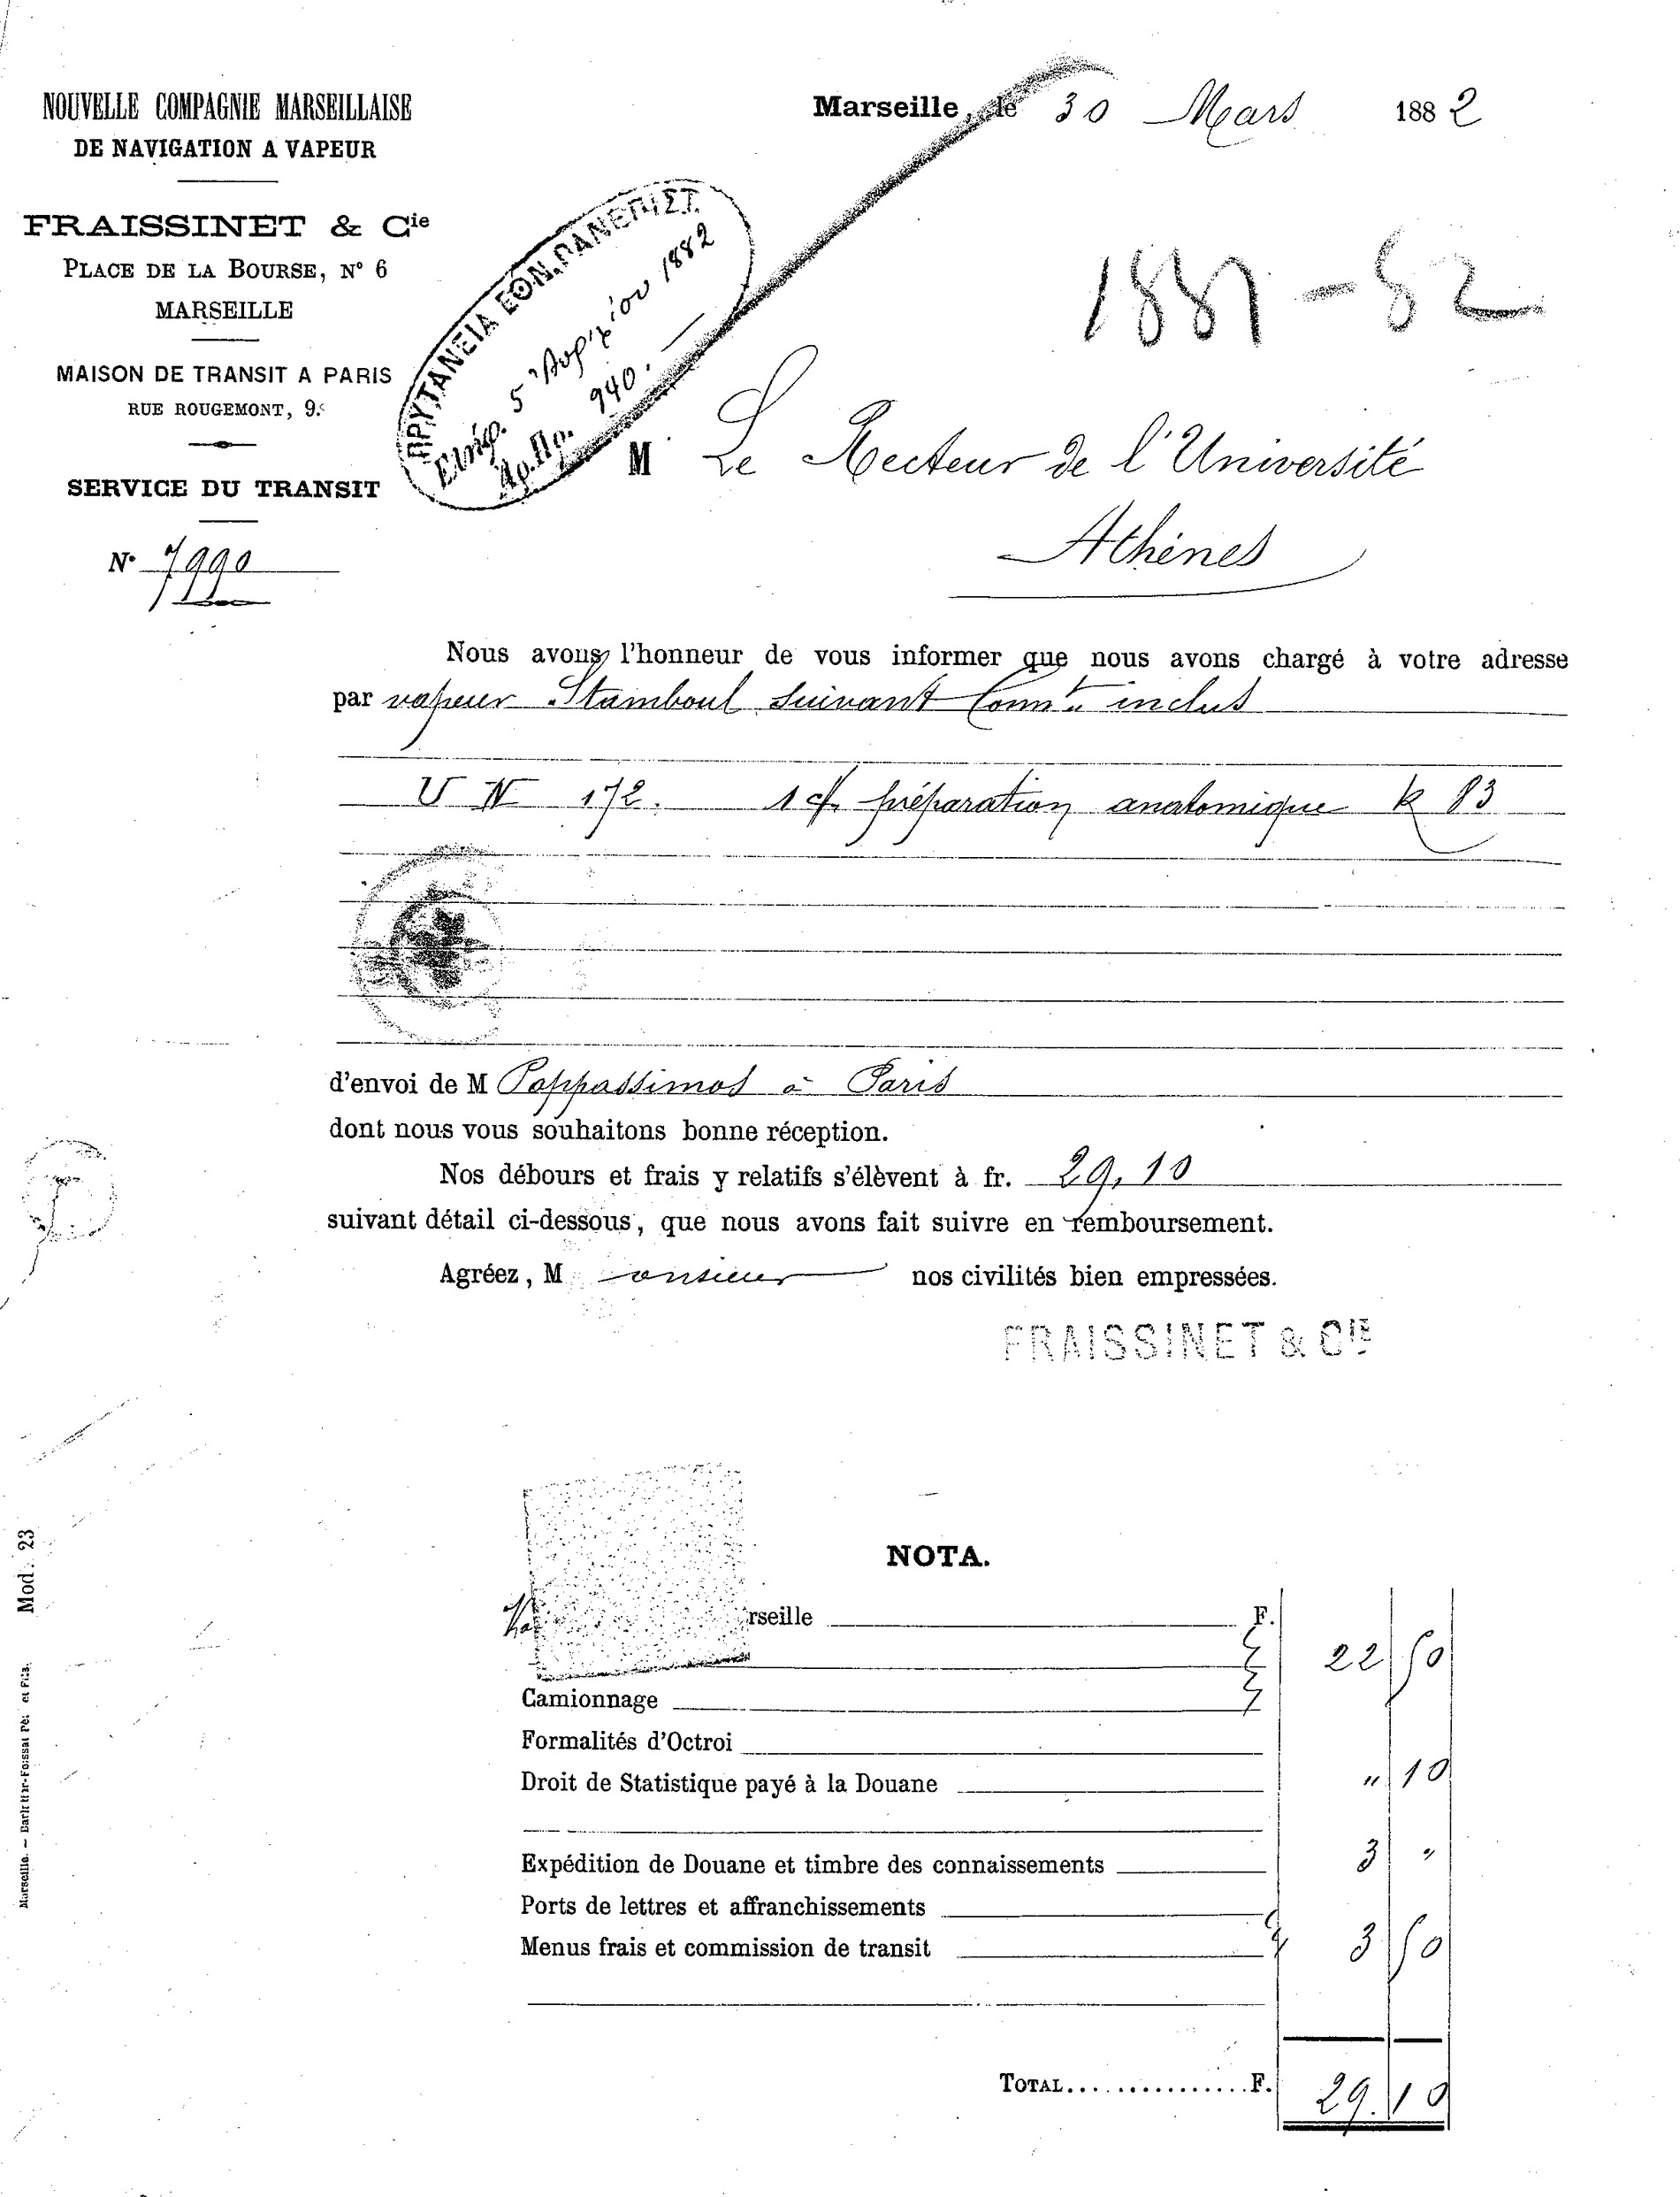 NOUVELLE COMPAGNIE MARSEILLAISE
DE NAVIGATION A VAPEUR
FRAISSINET & Cie
PLACE DE LA BOURSE, N° 6
MARSEILLE
MAISON DE TRANSIT A PARIS
RUE ROUGEMONT, 9.
SERVICE DU TRANSIT
N° 7990
Marseille, le 30 Mars 1882
ΠΡΥΤΑΝΕΙΑ ΕΘΝ. ΠΑΝΕΠΙΣΤ.
5 Ἀπριλίου 1882
Ἀρ. Πρ. 940.
1881-82
M Le Recteur de l'Université
Athènes
Nous avons l'honneur de vous informer que nous avons chargé à votre adresse
par vapeur Stamboul suivant Connt. inclus
U N 172. 1 c/ préparation anatomique k 83
d'envoi de M Pappassimos à Paris
dont nous vous souhaitons bonne réception.
Nos débours et frais y relatifs s'élèvent à fr. 29,10
suivant détail ci-dessous, que nous avons fait suivre en remboursement.
Agréez, Monsieur nos civilités bien empressées.
FRAISSINET & CIE
NOTA.
rseille F.
22 50
Camionnage
Formalités d'Octroi
Droit de Statistique payé à la Douane " 10
Expédition de Douane et timbre des connaissements 3 "
Ports de lettres et affranchissements
Menus frais et commission de transit 3 50
TOTAL................F. 29.10
Mod. 23
Marseille. –